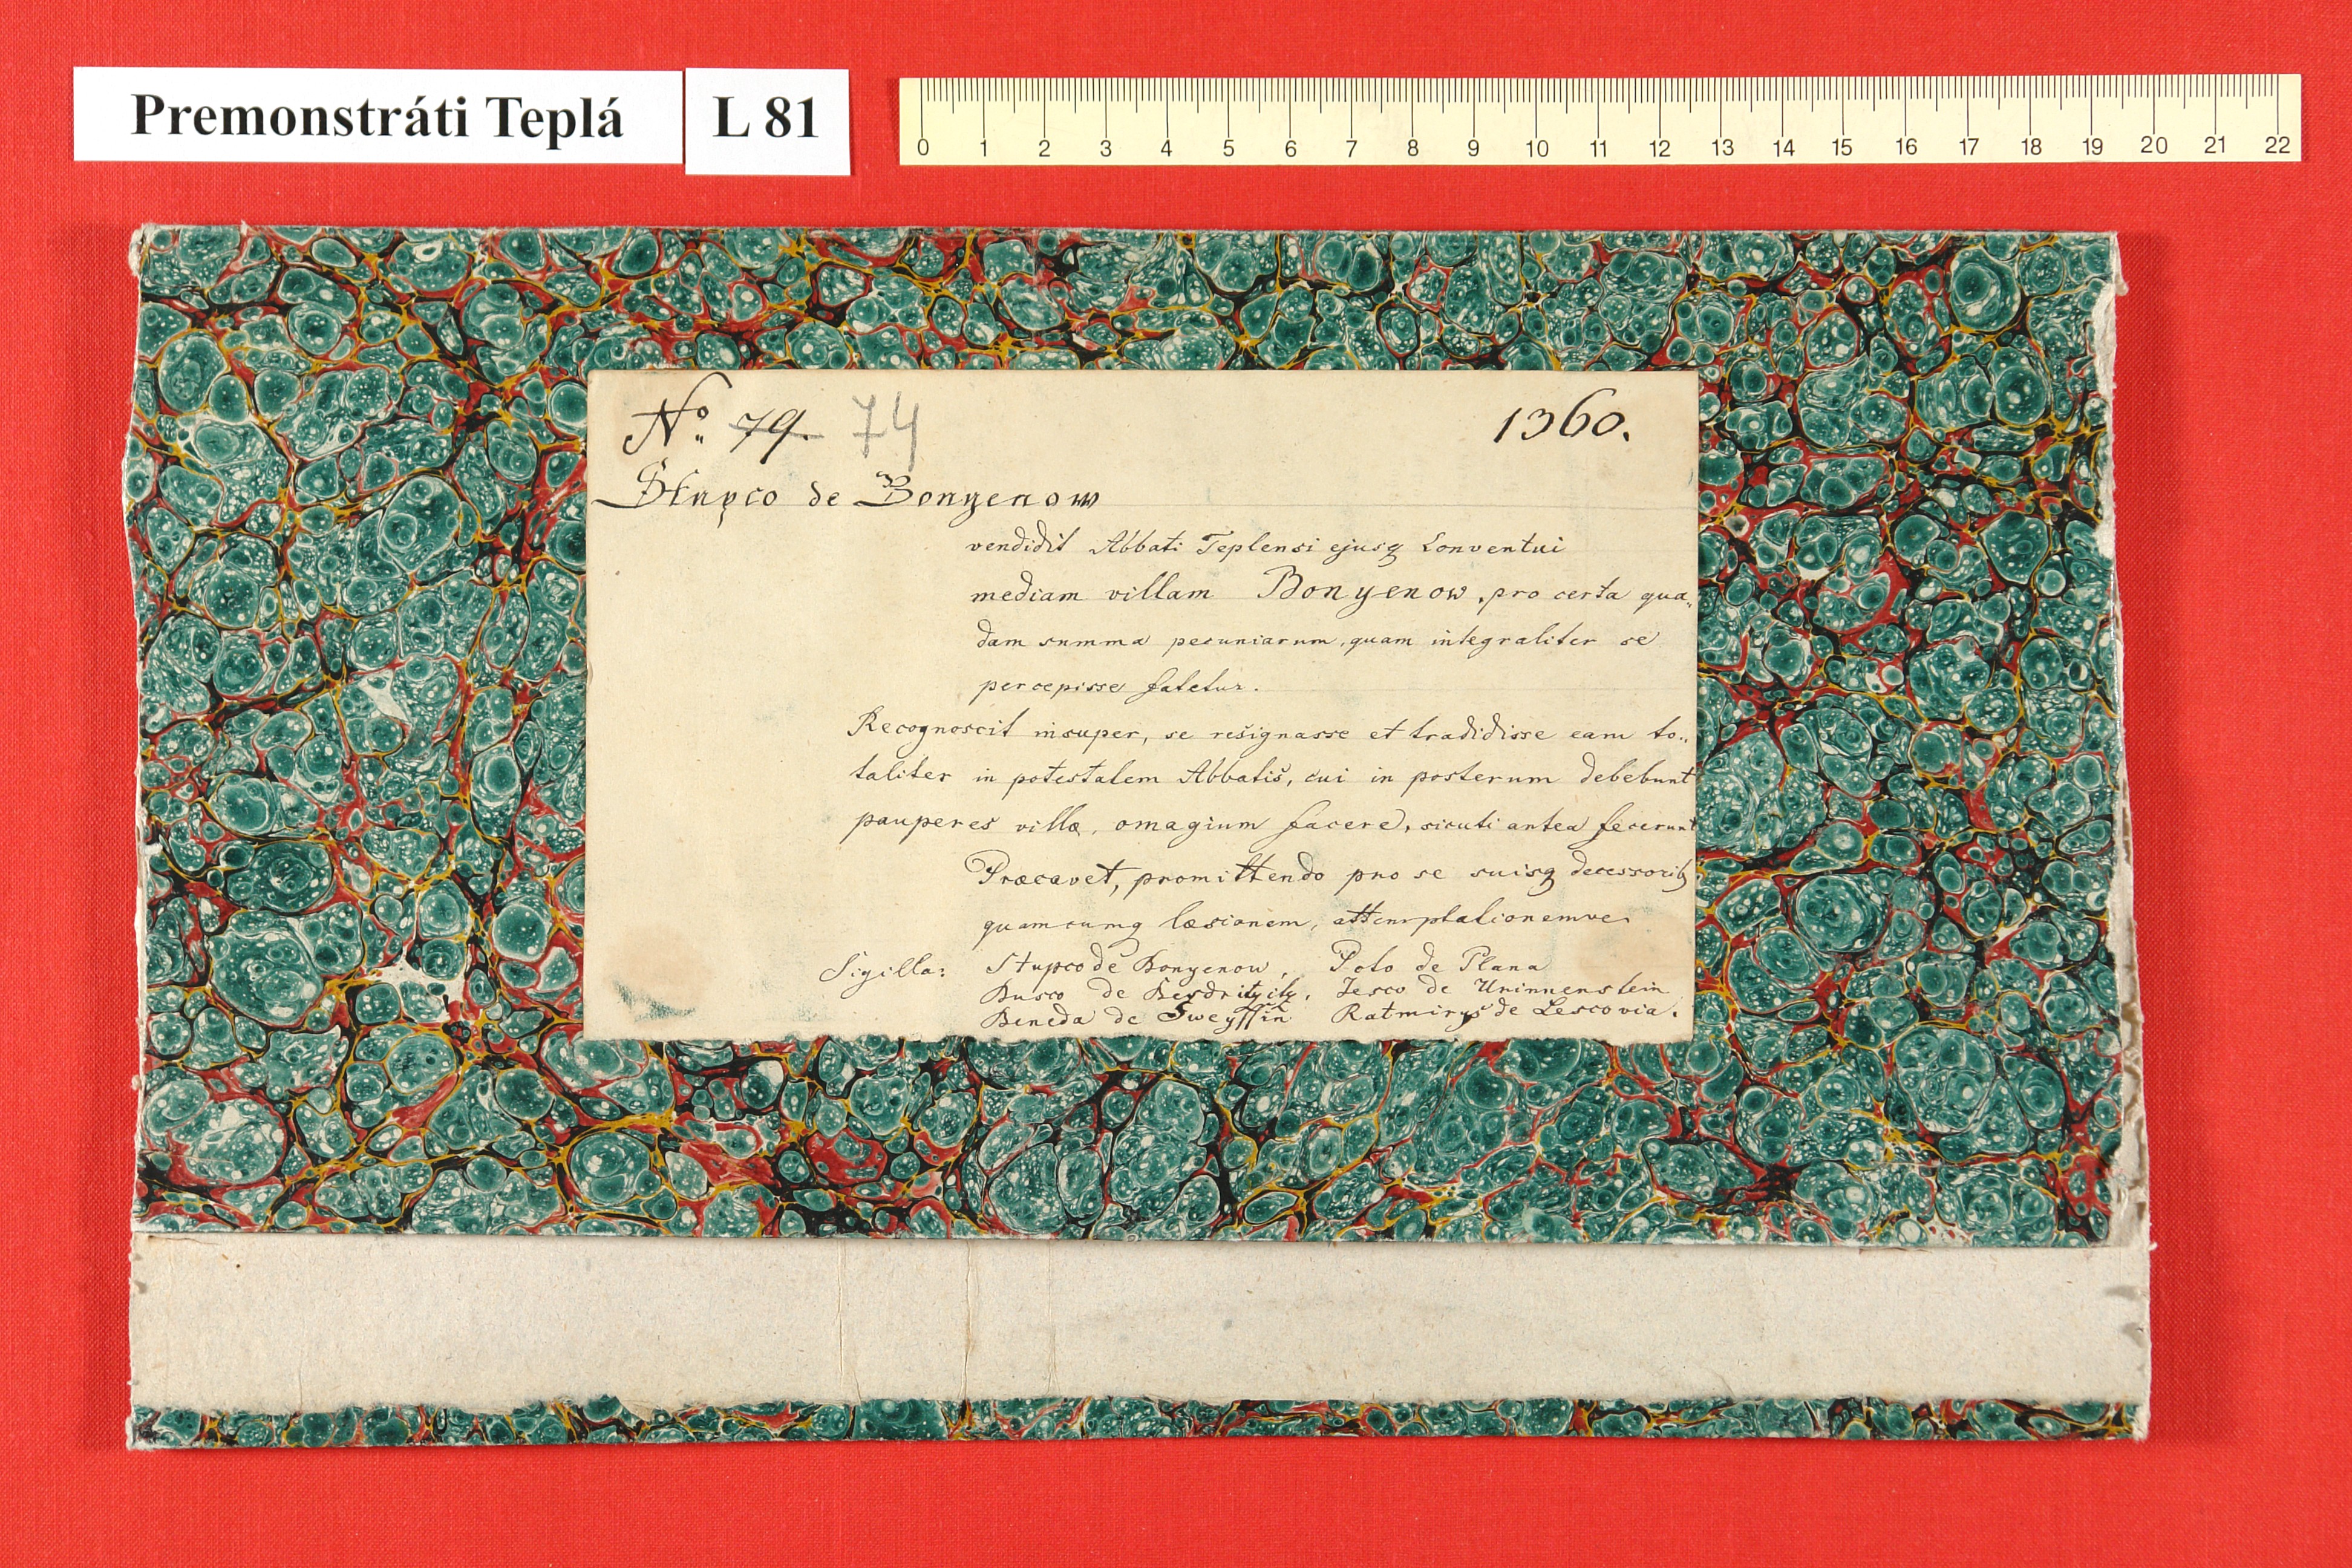 Premonstráti Teplá L 81
0 1 2 3 4 5 6 7 8 9 10 11 12 13 14 15 16 17 18 19 20 21 22
No. 79. 74 1360.
Stupco de Bonyenow
vendidit Abbati Teplensi ejusq Conventui
mediam villam Bonyenow, pro certa qua„
dam summa pecuniarum, quam integraliter se
percepisse fatetur.
Recognoscit insuper, se resignasse et tradidisse eam to„
taliter in potestatem Abbatis, cui in posterum debebunt
pauperes villæ, omagium facere, sicuti antea fecerunt
Præcavet, promittendo pro se suisq decessorib
quamcumq læsionem, attemptationemve.
Sigilla: Stupco de Bonyenow, Poto de Plana
Busco de Jesco de Uninnenstein
Beneda de Sweyssin Ratmirus de Lescovia.